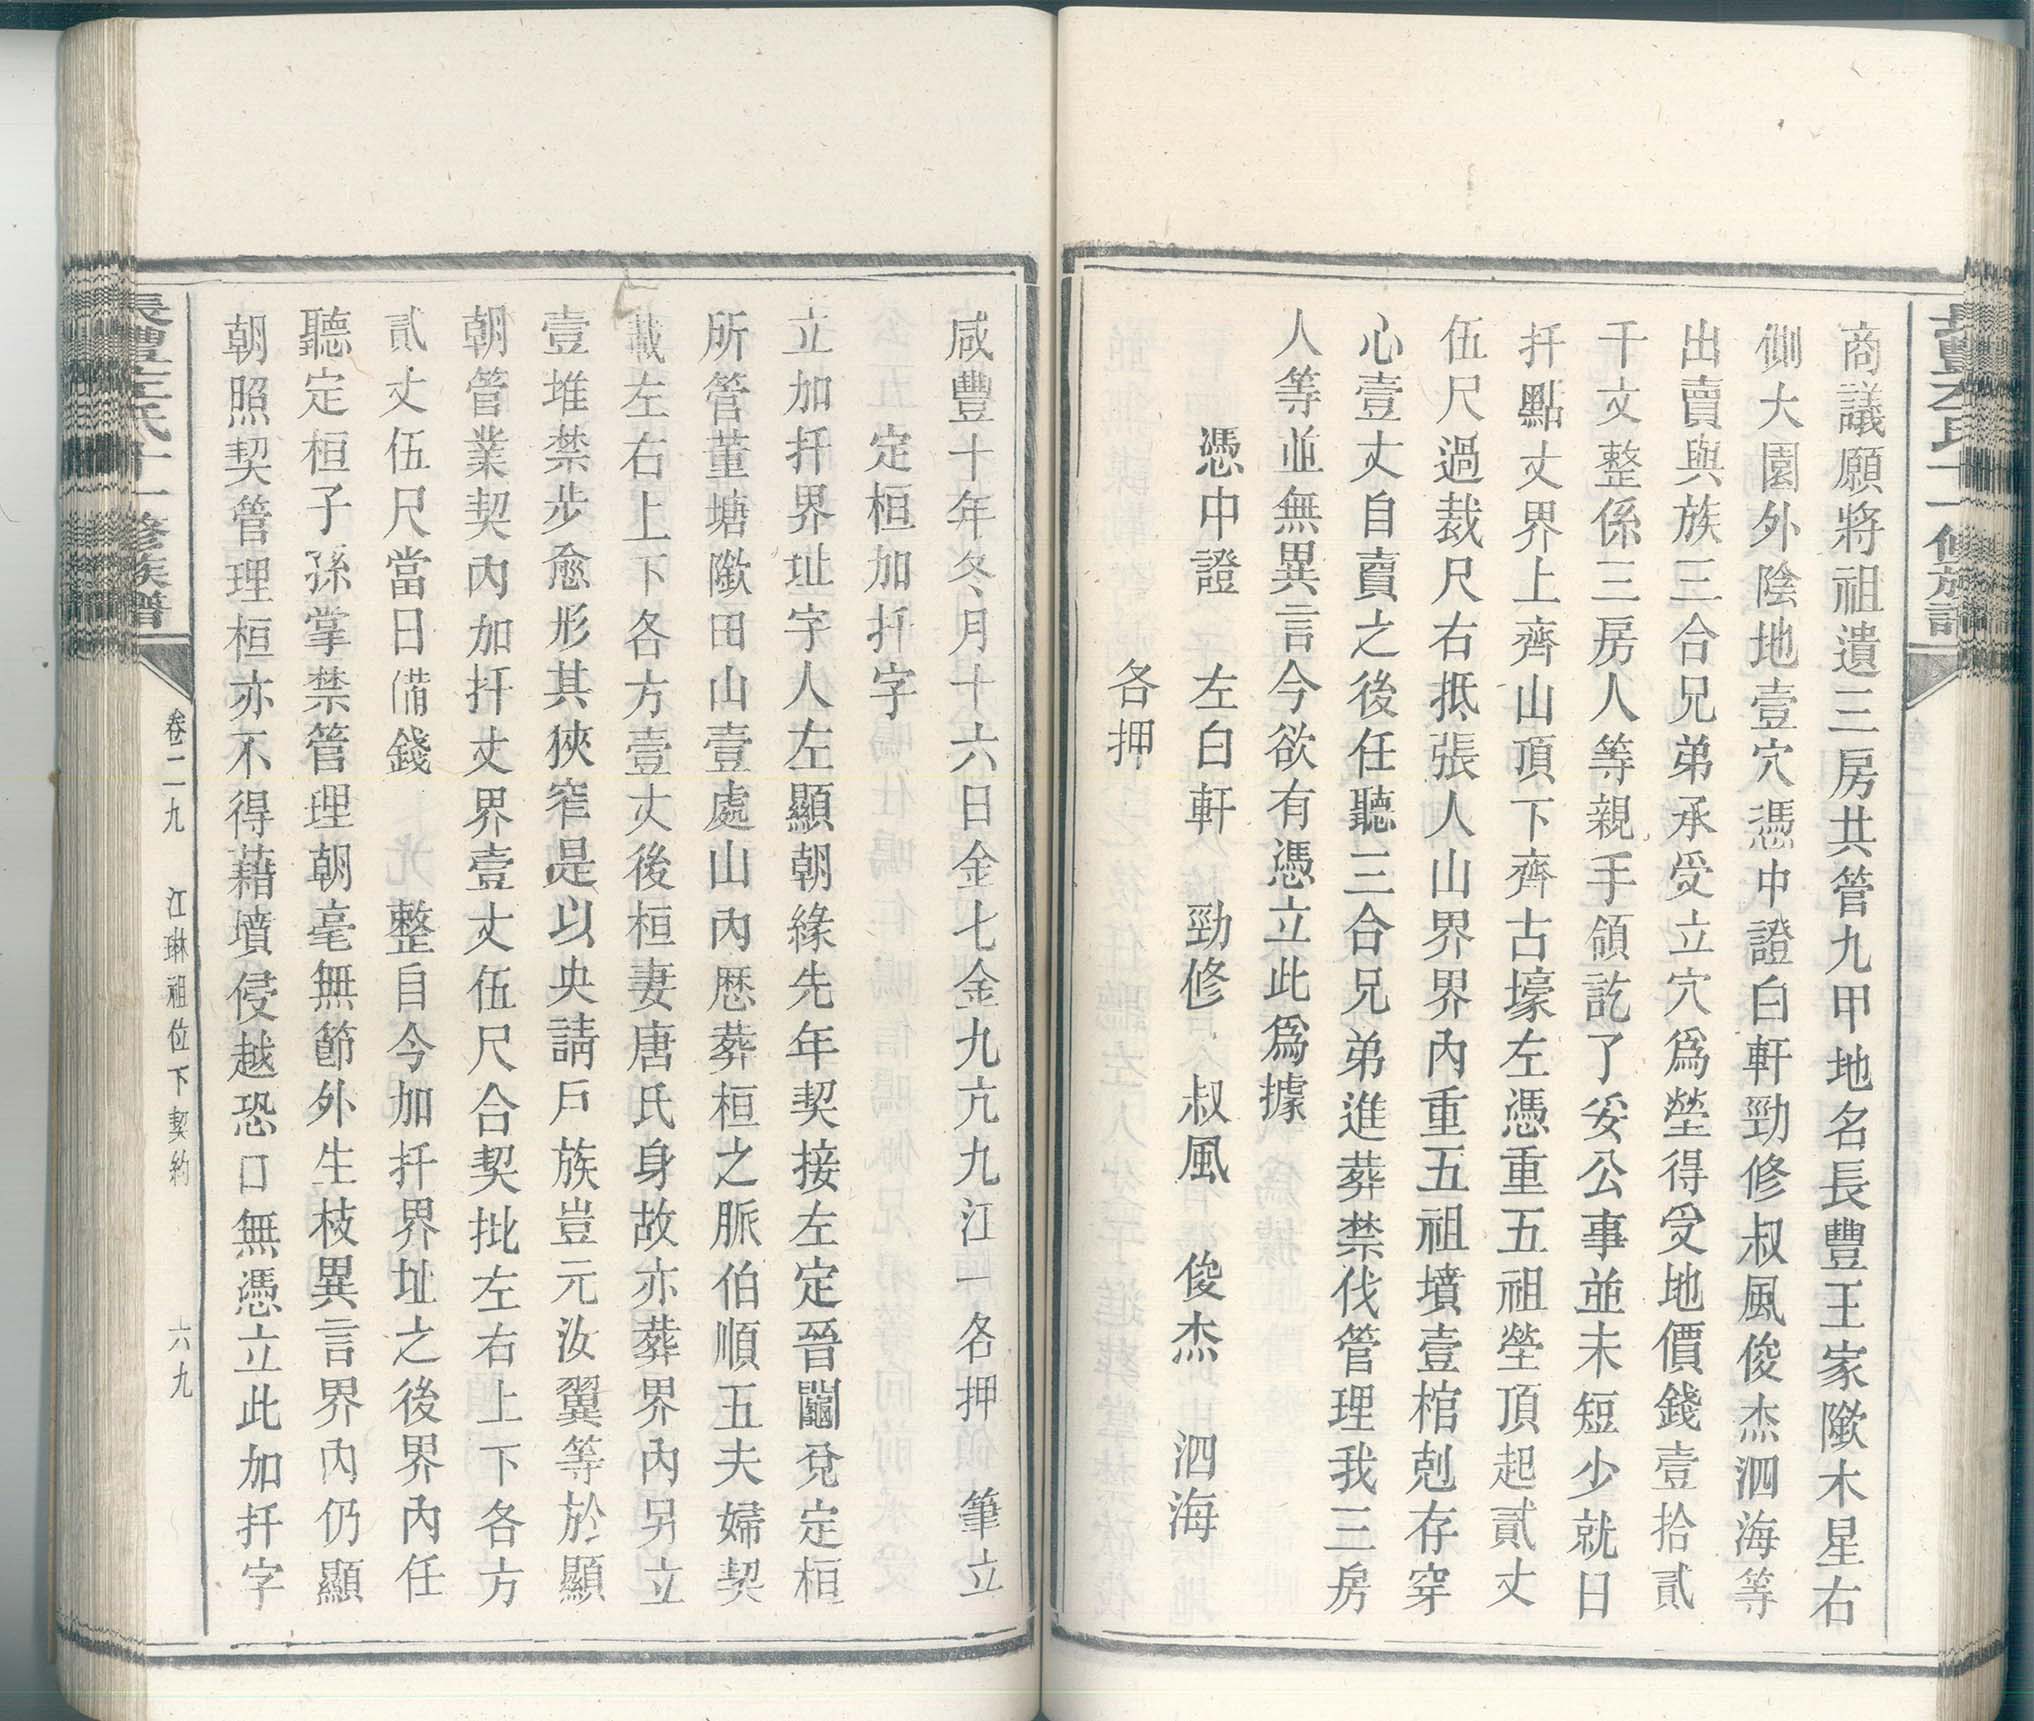 商議願將祖遺三房共管九甲地名長豐王家隞木星右
側大園外陰地壹穴憑中證白軒勁修叔風俊杰泗海等
出賣與族三合兄弟承受立穴為塋得受地價錢壹拾貳
千文整係三房人等親手領訖了妥公事並未短少就日
扦點丈界上齊山頂下齊古壕左憑重五祖塋頂起貳丈
伍尺過裁尺右抵張人山界界內重五祖墳壹棺剋存穿
心壹丈自賣之後任聽三合兄弟進葬禁伐管理我三房
人等並無異言今欲有憑立此為據
憑中證 左白軒 勁修 叔風 俊杰 泗海
各押
咸豐十年冬月十六日金七金九亢九江一各押 筆立
定桓加扦字
立加扦界址字人左顯朝緣先年契接左定晉闓兌定桓
所管董塘隞田山壹處山內歷葬桓之脈伯順五夫婦契
載左右上下各方壹丈後桓妻唐氏身故亦葬界內另立
壹堆禁步愈形其狹窄是以央請戶族豈元汝翼等於顯
朝管業契內加扦丈界壹丈伍尺合契批左右上下各方
貳丈伍尺當日備錢 整自今加扦界址之後界內任
聽定桓子孫掌禁管理朝毫無節外生枝異言界內仍顯
朝照契管理桓亦不得藉墳侵越恐口無憑立此加扦字
卷二九 江琳祖位下契約 六九